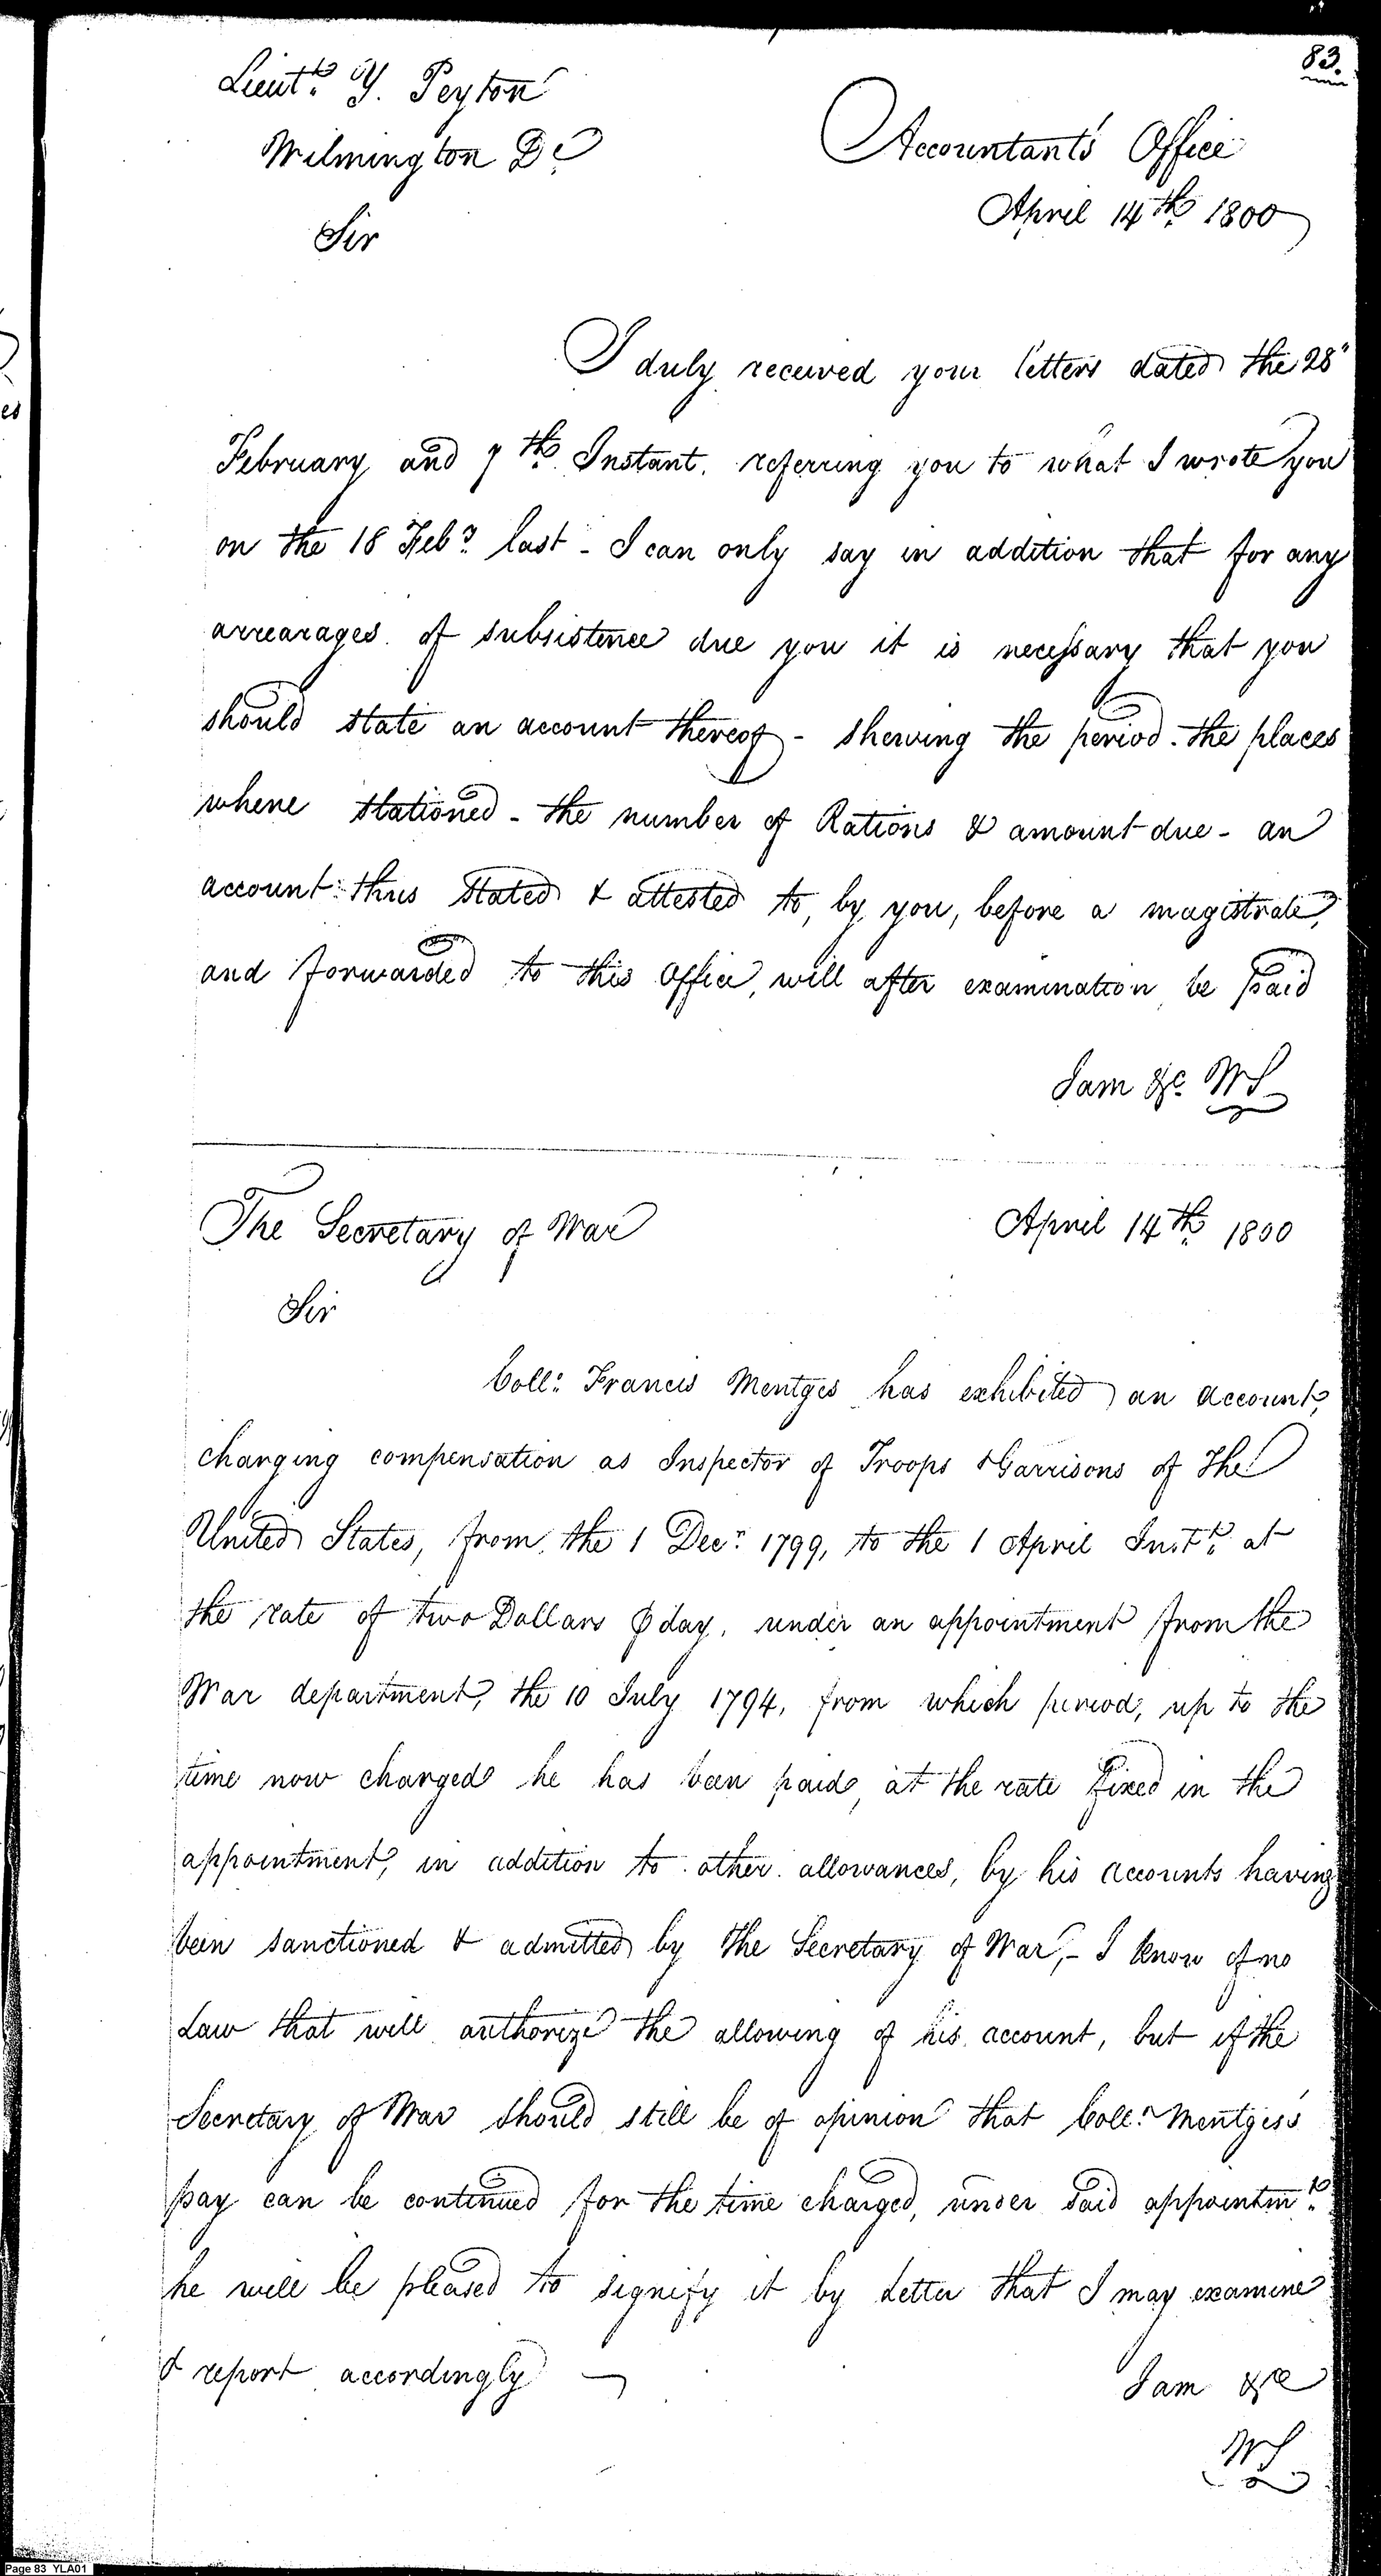 83.
Lieut.t Y. Peyton
Accountant's Office
Wilmington De.
April 14th 1800
Sir
I duly received your letters dated the 28"
February and 7th. Instant. referring you to what I wrote you
on the 18 Feby. last - I can only say in addition that for any
arrearages of subsistence due you it is necessary that you
should state an account thereof - shewing the period - the places
where stationed - the number of Rations & amount due - an
account thus stated & attested to, by you, before a magistrate,
and forwarded to this Office, will after examination be paid
I am &c. WS
The Secretary of War
April 14th. 1800
Sir
Coll. Francis Mentges has exhibited an account,
charging compensation as Inspector of Troops & Garrisons of The
United States, from the 1 Decr. 1799, to the 1 April Inst. at
the rate of two Dollars ⅌ day, under an appointment from the
War department, the 10 July 1794, from which period, up to the
time now charged he has been paid, at the rate fixed in the
appointment, in addition to other allowances, by his accounts having
been sanctioned & admitted by the Secretary of War, - I know of no
Law that will authorize the allowing of his account, but if the
Secretary of War should still be of opinion that Coll. Mentges's
pay can be continued for the time charged, under said appointmt.
he will be pleased to signify it by Letter that I may examine
& report accordingly —
I am &c
WS
Page 83 YLA01